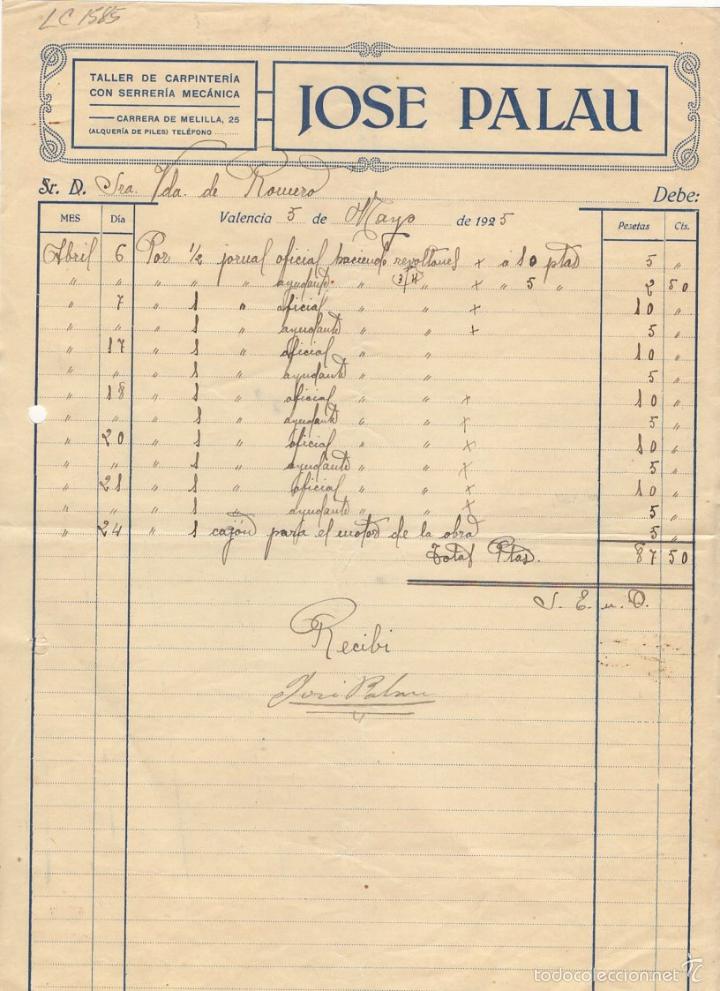 LC 1585
TALLER DE CARPINTERÍA
CON SERRERÍA MECÁNICA
CARRERA DE MELILLA, 25
(ALQUERÍA DE PILES) TELÉFONO
JOSE PALAU
Sr. D. Sra. Vda. de Romero Debe:
MES Día Valencia 5 de Mayo de 1925 Pesetas Cts.
Abril 6 Por 1/2 jornal oficial haciendo revoltones x a 10 ptas 5 "
" " " " " ayudante " " x " 5 " 2 50
" 7 " 1 " oficial " " x 10 "
" " " 1 " ayudante " " x 5 "
" 17 " 1 " oficial " " 10 "
" " " 1 " ayudante " " 5 "
" 18 " 1 " oficial " " x 10 "
" " " 1 " ayudante " " x 5 "
" 20 " 1 " oficial " " x 10 "
" " " 1 " ayudante " " x 5 "
" 21 " 1 " oficial " " x 10 "
" " " 1 " ayudante " " x 5 "
" 24 " 1 cajón para el motor de la obra 5 "
Total Ptas. 87 50
S. E. u O.
Recibi
José Palau
todocoleccion.net